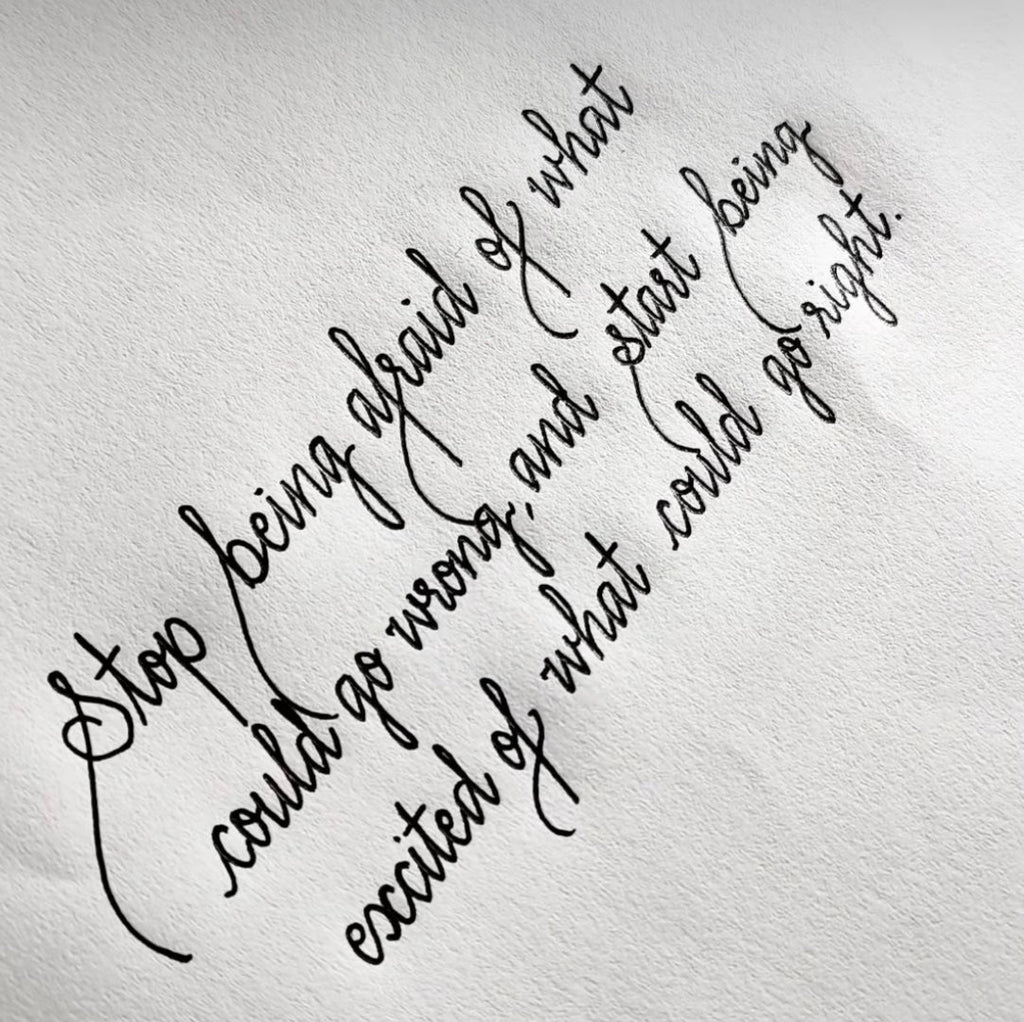 Stop being afraid of what
could go wrong, and start being
excited of what could go right.